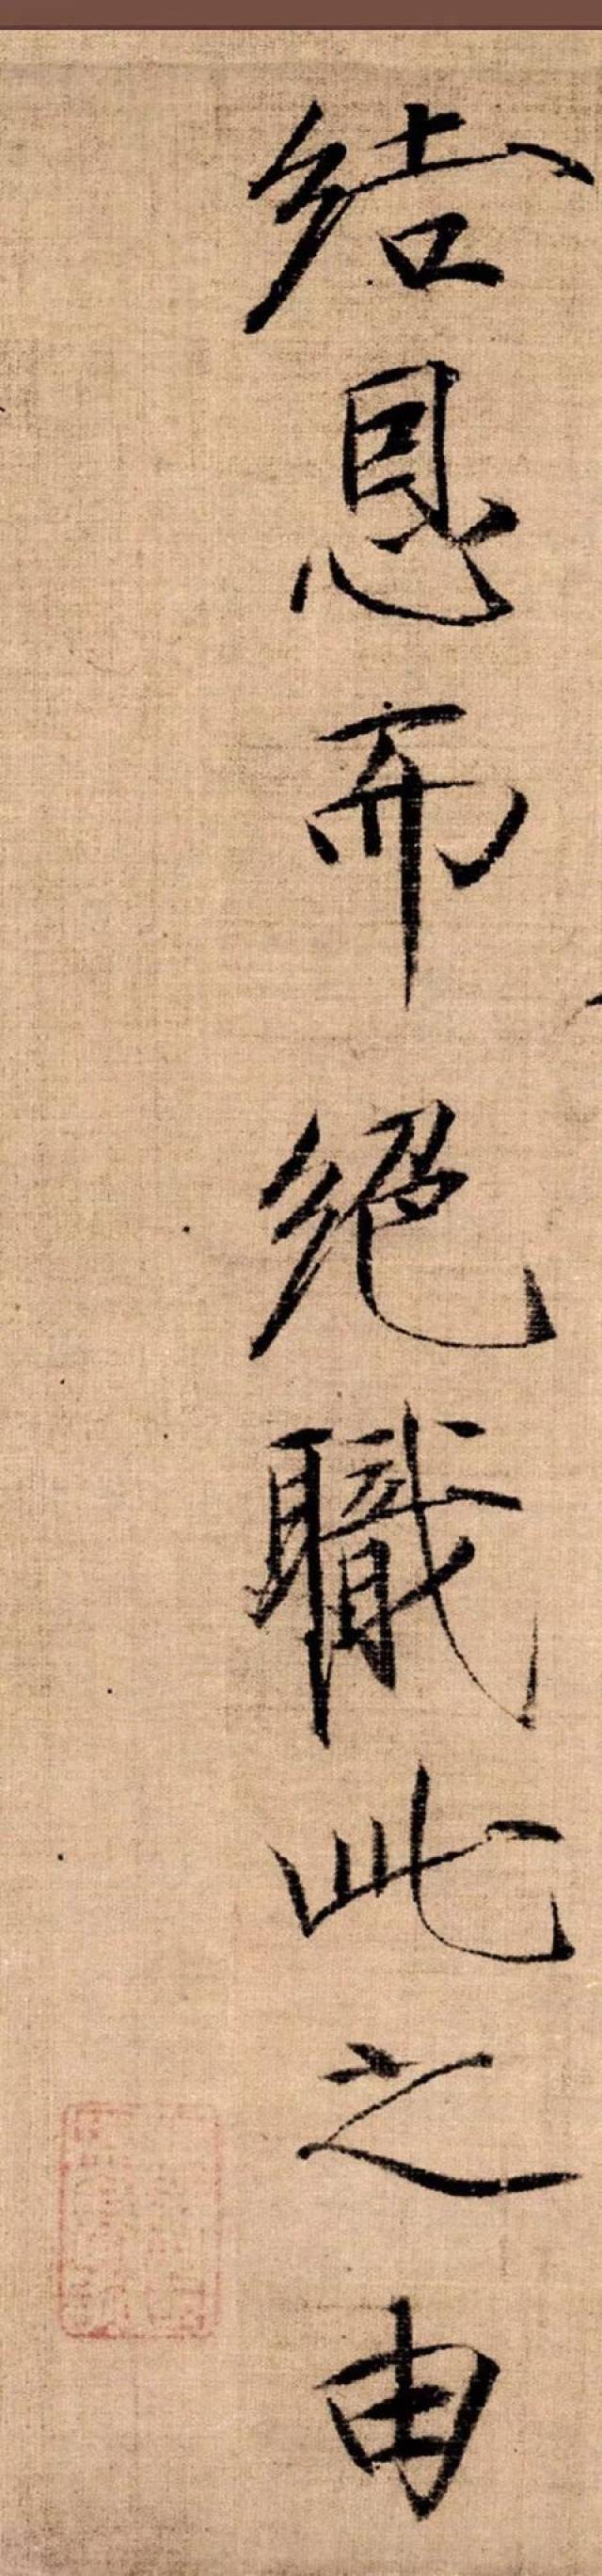 结恩而絕職此之由